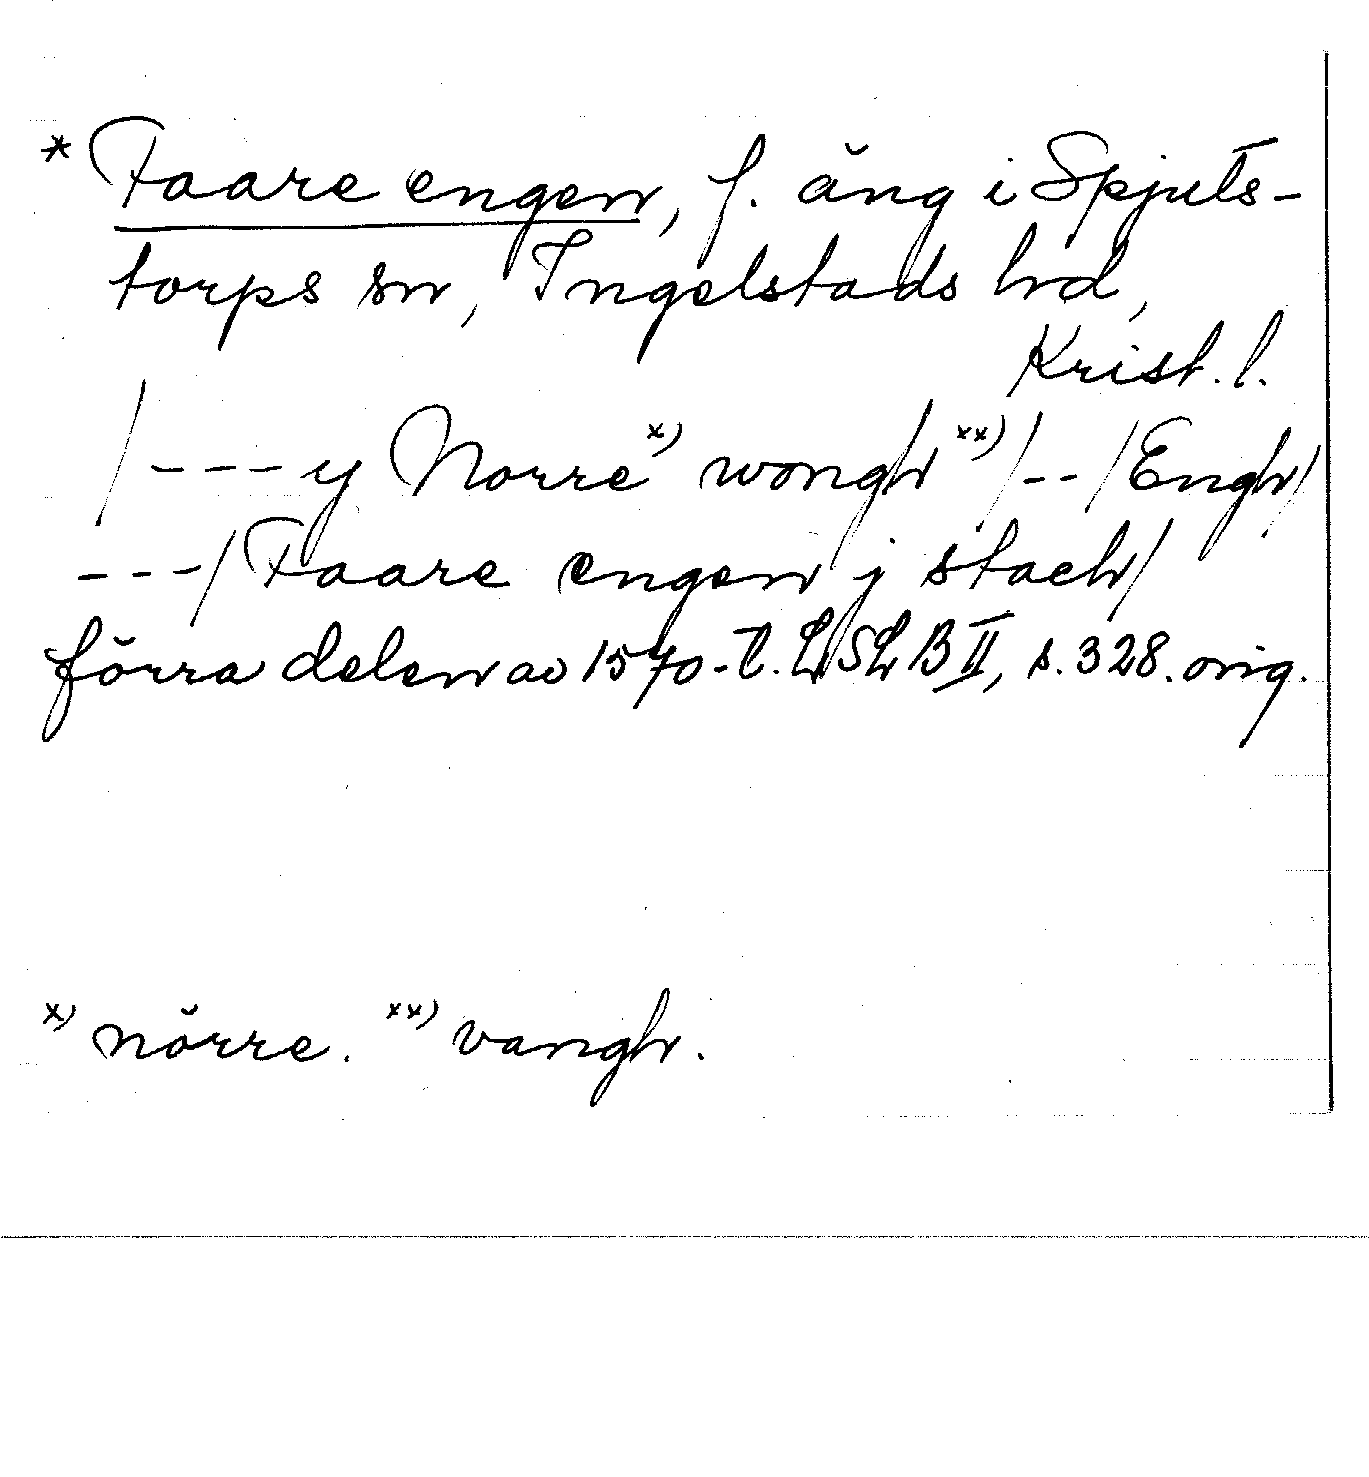 * Faare engen, f. äng i Spjuts-
torps sn, Ingelstads hd,
Krist. l.
/---y Norre x) wongh xx)/--/Engh/
---/Faare engen j stach/
förra delen av 1570-t. LSLB II, s. 328. orig.
x) nörre. xx) vangh.